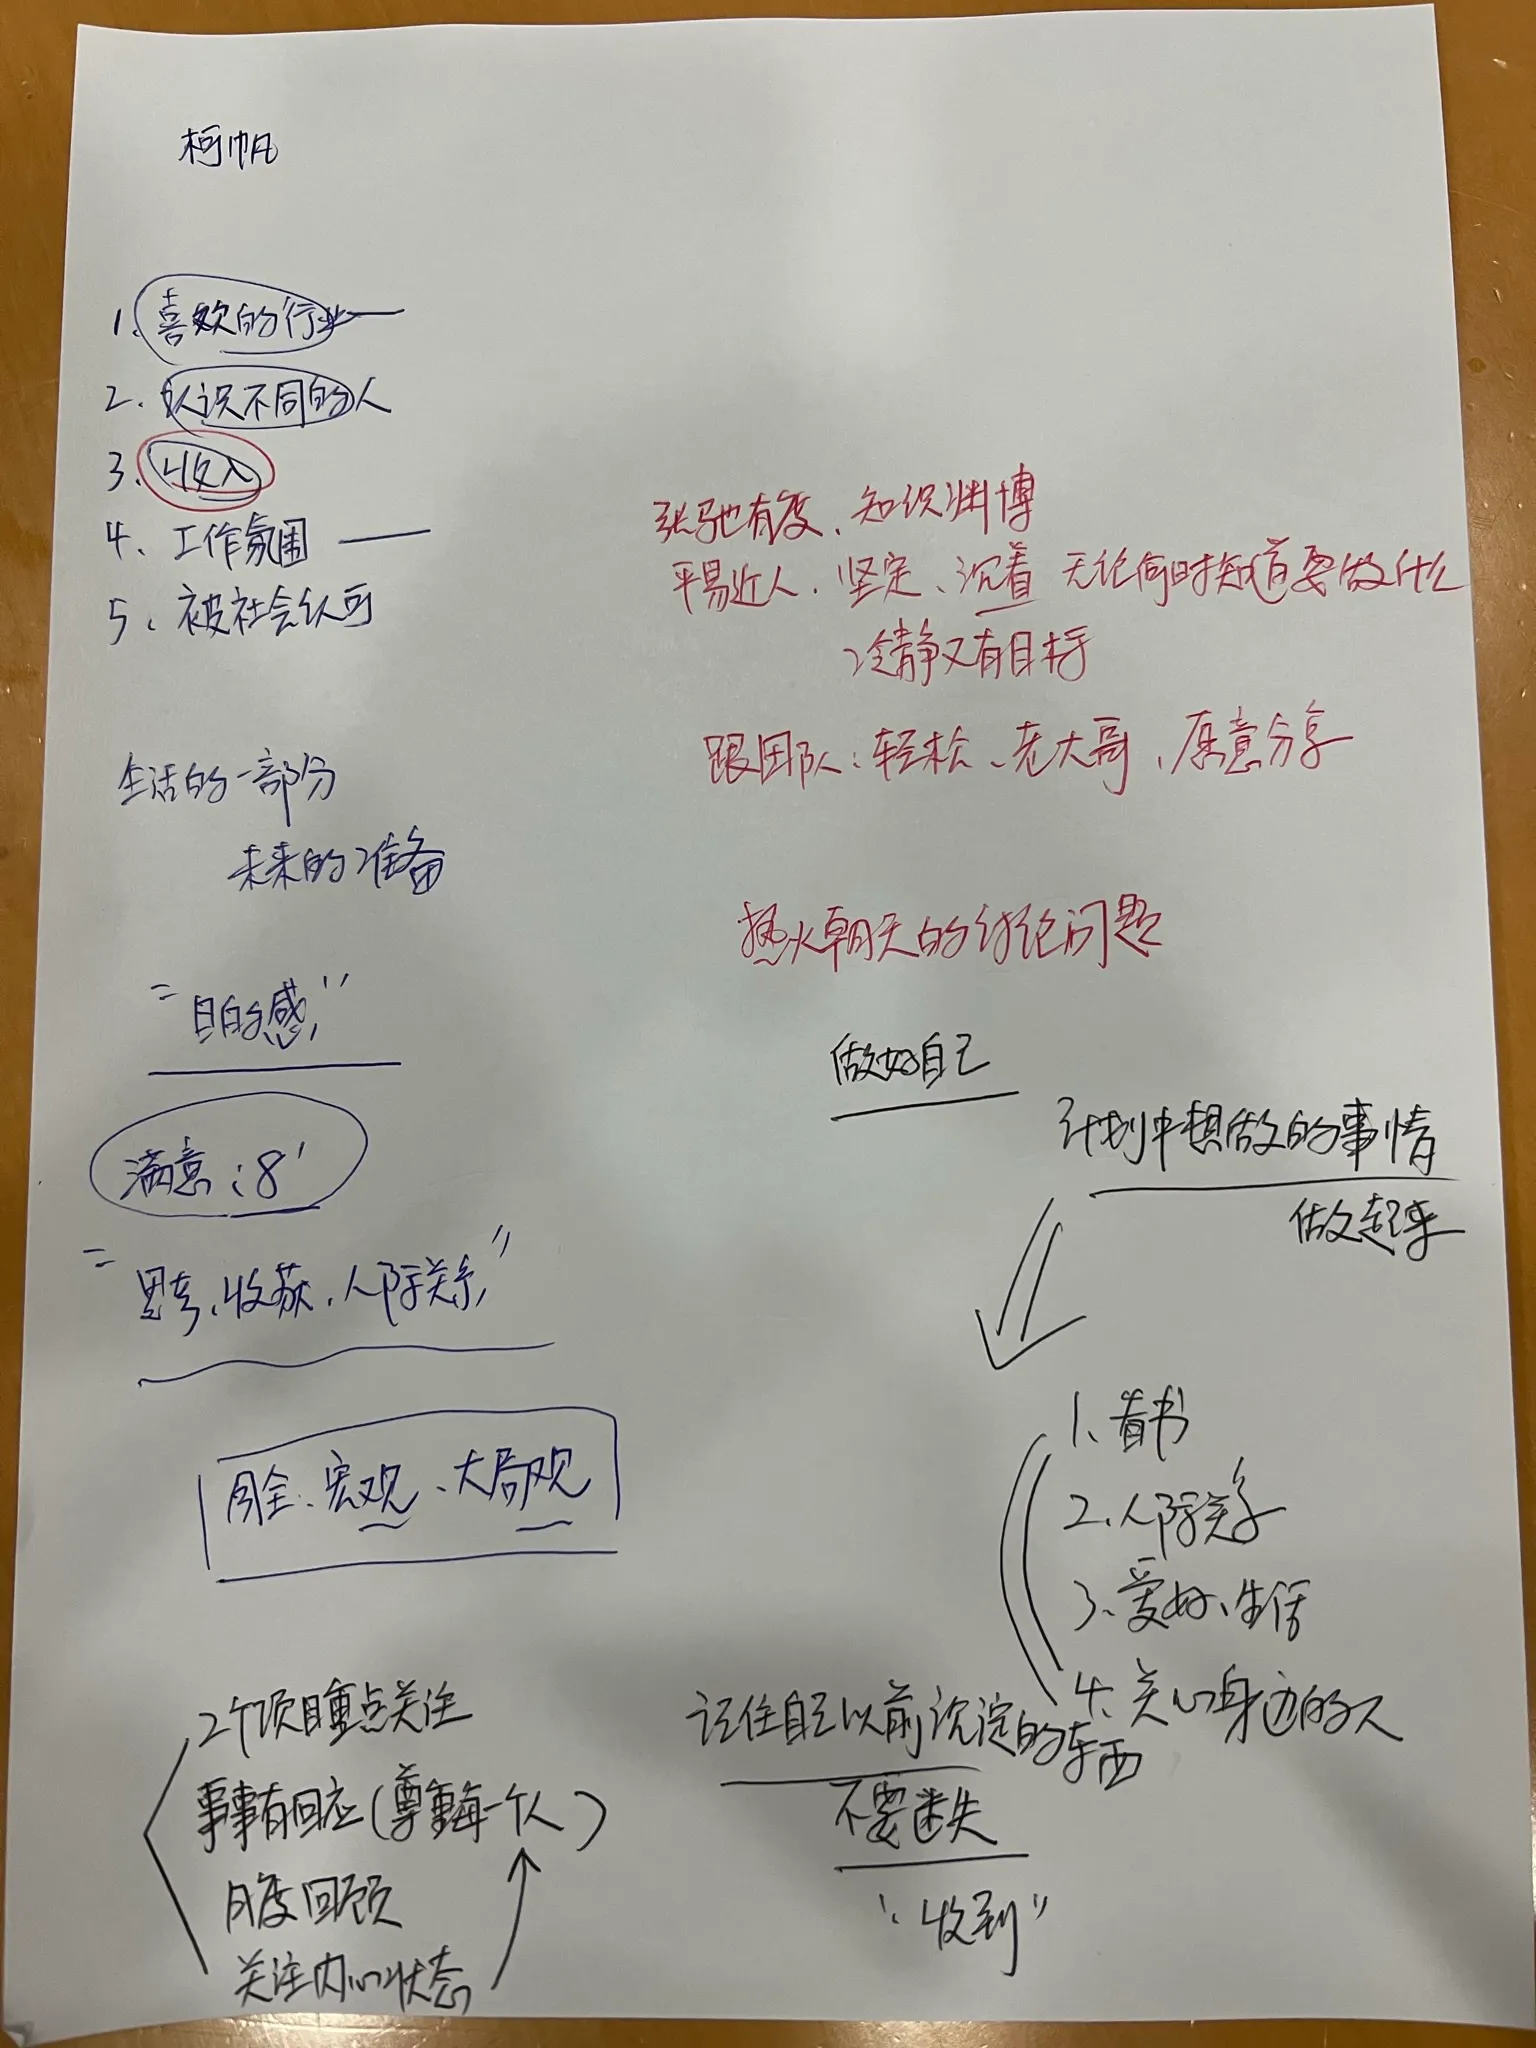 柯帆
1、喜欢的行业——
2、认识不同的人
3、收入
4、工作氛围 ——
5、被社会认可
生活的一部分
未来的准备
"目的感"
满意：8'
"思考、收获、人际关系"
周全、宏观、大局观
2个项目重点关注
事事有回应(尊重每一个人)
月度回顾
关注内心状态
张弛有度、知识渊博
平易近人、坚定、沉着 无论何时知道要做什么
冷静又有目标
跟团队：轻松、老大哥、愿意分享
热火朝天的讨论问题
做好自己
计划中想做的事情
做起来
1、看书
2、人际关系
3、爱好、生活
4、关心身边的人
记住自己以前沉淀的东西
不要迷失
"收到"